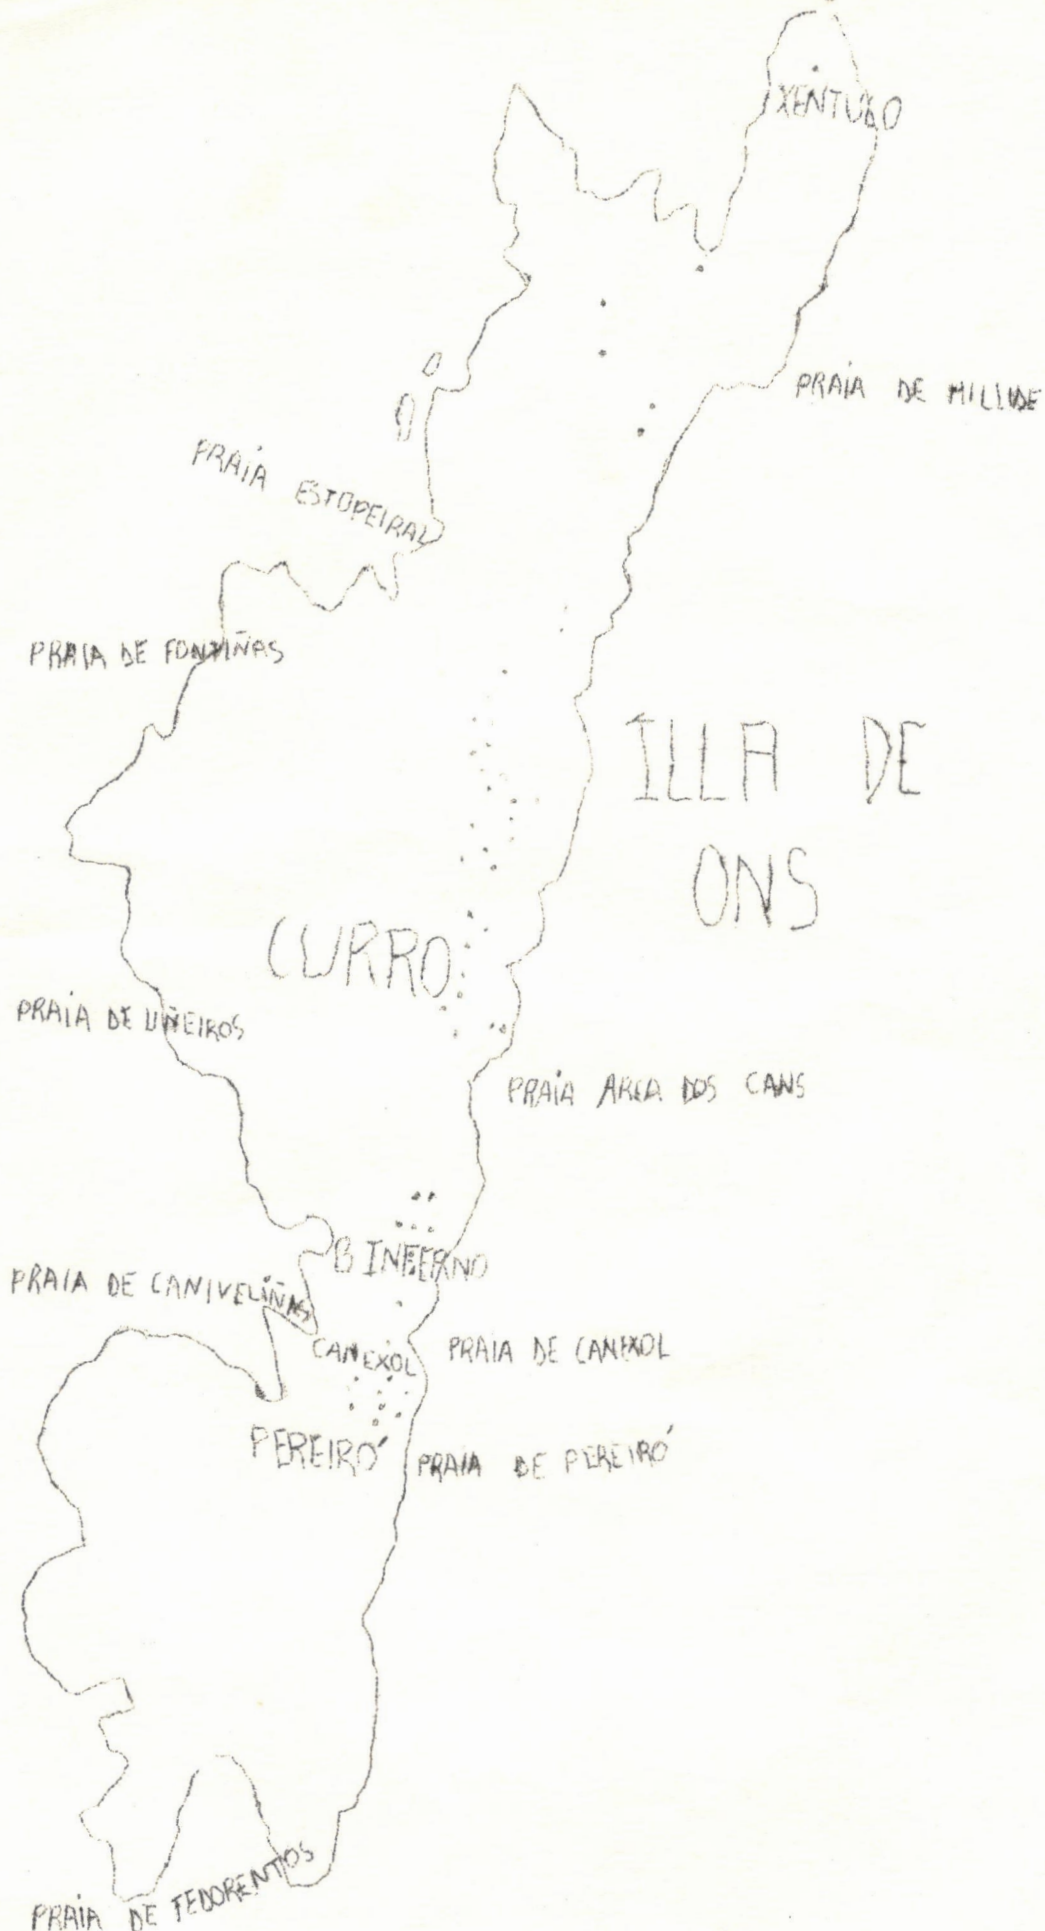 XENTUDO
PRAIA DE MILLIDE
PRAIA ESTOPEIRAL
PRAIA DE FONTIÑAS
ILLA DE
ONS
CURRO
PRAIA DE UÑEIROS
PRAIA AREA DOS CANS
B INFERNO
PRAIA DE CANIVELIÑAS
CANEXOL
PRAIA DE CANEXOL
PEREIRÓ
PRAIA DE PEREIRÓ
PRAIA DE FEDORENTOS